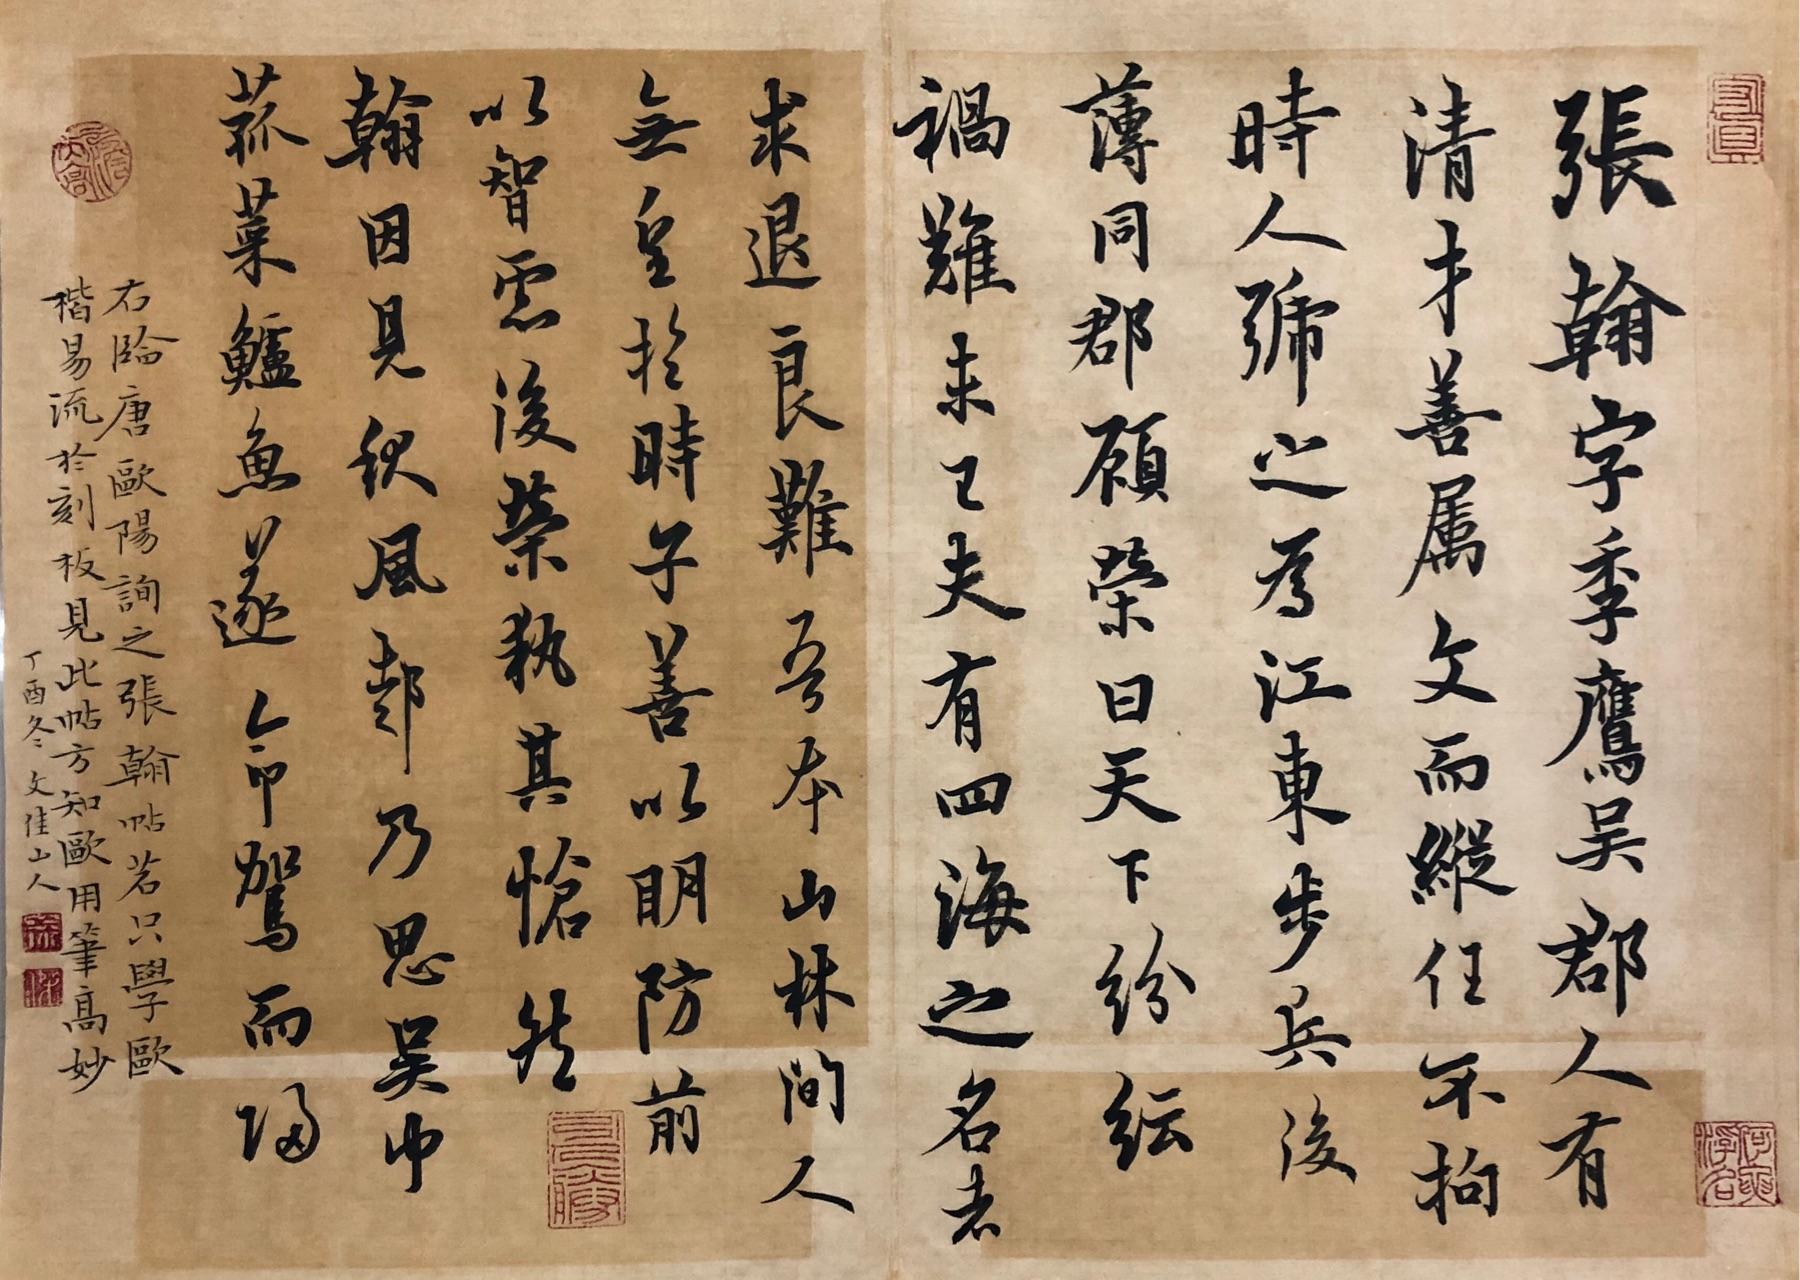 張翰字季鷹吳郡人有
清才善属文而縱任不拘
時人號之為江東步兵後
薄同郡顧榮曰天下紛紜
禍難未已夫有四海之名者
求退良難吾本山林間人
無望於時子善以明防前
以智慮後榮執其愴然
翰因見秋風起乃思吳中
菰菜鱸魚遂命駕而歸
右臨唐歐陽詢之張翰帖若只學歐
楷易流於刻板見此帖方知歐用筆高妙
丁酉冬文佳山人